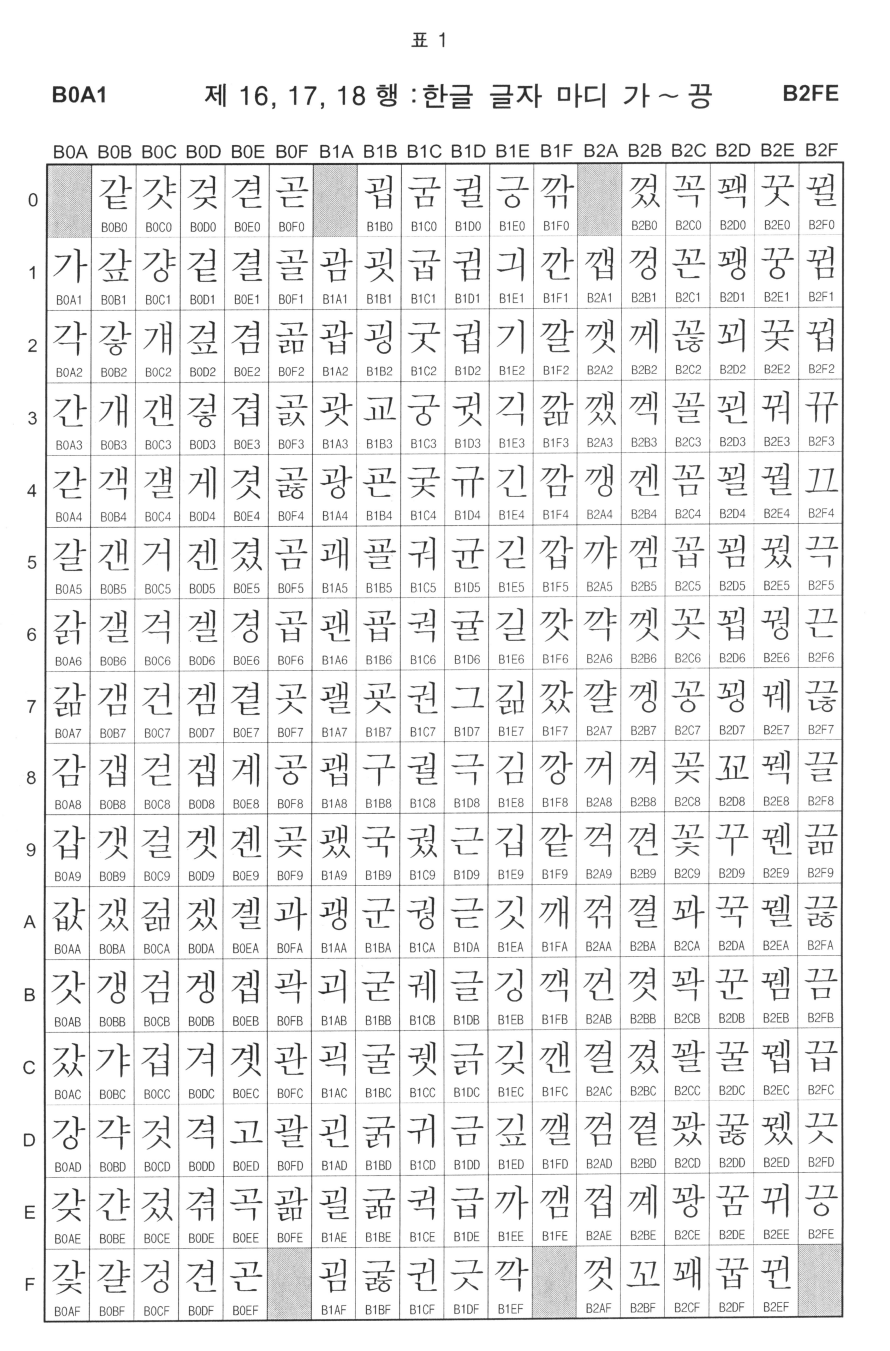 표 1
B0A1 제 16, 17, 18 행 : 한글 글자 마디 가 ~ 끙 B2FE
B0A B0B B0C B0D B0E B0F B1A B1B B1C B1D B1E B1F B2A B2B B2C B2D B2E B2F
0 같 걋 겆 겯 곧 굅 굼 귈 긍 깎 껐 꼭 꽥 꿋 뀔
B0B0 B0C0 B0D0 B0E0 B0F0 B1B0 B1C0 B1D0 B1E0 B1F0 B2B0 B2C0 B2D0 B2E0 B2F0
1 가 갚 걍 겉 결 골 괌 굇 굽 귐 긔 깐 깹 껑 꼰 꽹 꿍 뀜
B0A1 B0B1 B0C1 B0D1 B0E1 B0F1 B1A1 B1B1 B1C1 B1D1 B1E1 B1F1 B2A1 B2B1 B2C1 B2D1 B2E1 B2F1
2 각 갛 걔 겊 겸 곪 괍 굉 굿 귑 기 깔 깻 께 꼲 꾀 꿎 뀝
B0A2 B0B2 B0C2 B0D2 B0E2 B0F2 B1A2 B1B2 B1C2 B1D2 B1E2 B1F2 B2A2 B2B2 B2C2 B2D2 B2E2 B2F2
3 간 개 걘 겋 겹 곬 괏 교 궁 귓 긱 깖 깼 껙 꼴 꾄 꿔 뀨
B0A3 B0B3 B0C3 B0D3 B0E3 B0F3 B1A3 B1B3 B1C3 B1D3 B1E3 B1F3 B2A3 B2B3 B2C3 B2D3 B2E3 B2F3
4 갇 객 걜 게 겻 곯 광 굔 궂 규 긴 깜 깽 껜 꼼 꾈 꿜 끄
B0A4 B0B4 B0C4 B0D4 B0E4 B0F4 B1A4 B1B4 B1C4 B1D4 B1E4 B1F4 B2A4 B2B4 B2C4 B2D4 B2E4 B2F4
5 갈 갠 거 겐 겼 곰 괘 굘 궈 균 긷 깝 꺄 껨 꼽 꾐 꿨 끅
B0A5 B0B5 B0C5 B0D5 B0E5 B0F5 B1A5 B1B5 B1C5 B1D5 B1E5 B1F5 B2A5 B2B5 B2C5 B2D5 B2E5 B2F5
6 갉 갤 걱 겔 경 곱 괜 굡 궉 귤 길 깟 꺅 껫 꼿 꾑 꿩 끈
B0A6 B0B6 B0C6 B0D6 B0E6 B0F6 B1A6 B1B6 B1C6 B1D6 B1E6 B1F6 B2A6 B2B6 B2C6 B2D6 B2E6 B2F6
7 갊 갬 건 겜 곁 곳 괠 굣 권 그 긺 깠 꺌 껭 꽁 꾕 꿰 끊
B0A7 B0B7 B0C7 B0D7 B0E7 B0F7 B1A7 B1B7 B1C7 B1D7 B1E7 B1F7 B2A7 B2B7 B2C7 B2D7 B2E7 B2F7
8 감 갭 걷 겝 계 공 괩 구 궐 극 김 깡 꺼 껴 꽂 꾜 꿱 끌
B0A8 B0B8 B0C8 B0D8 B0E8 B0F8 B1A8 B1B8 B1C8 B1D8 B1E8 B1F8 B2A8 B2B8 B2C8 B2D8 B2E8 B2F8
9 갑 갯 걸 겟 곈 곶 괬 국 궜 근 깁 깥 꺽 껸 꽃 꾸 꿴 끎
B0A9 B0B9 B0C9 B0D9 B0E9 B0F9 B1A9 B1B9 B1C9 B1D9 B1E9 B1F9 B2A9 B2B9 B2C9 B2D9 B2E9 B2F9
A 값 갰 걺 겠 곌 과 괭 군 궝 귿 깃 깨 꺾 껼 꽈 꾹 꿸 끓
B0AA B0BA B0CA B0DA B0EA B0FA B1AA B1BA B1CA B1DA B1EA B1FA B2AA B2BA B2CA B2DA B2EA B2FA
B 갓 갱 검 겡 곕 곽 괴 굳 궤 글 깅 깩 껀 꼇 꽉 꾼 뀀 끔
B0AB B0BB B0CB B0DB B0EB B0FB B1AB B1BB B1CB B1DB B1EB B1FB B2AB B2BB B2CB B2DB B2EB B2FB
C 갔 갸 겁 겨 곗 관 괵 굴 궷 긁 깆 깬 껄 꼈 꽐 꿀 뀁 끕
B0AC B0BC B0CC B0DC B0EC B0FC B1AC B1BC B1CC B1DC B1EC B1FC B2AC B2BC B2CC B2DC B2EC B2FC
D 강 갹 것 격 고 괄 괸 굵 귀 금 깊 깰 껌 꼍 꽜 꿇 뀄 끗
B0AD B0BD B0CD B0DD B0ED B0FD B1AD B1BD B1CD B1DD B1ED B1FD B2AD B2BD B2CD B2DD B2ED B2FD
E 갖 갼 겄 겪 곡 괆 괼 굶 귁 급 까 깸 껍 꼐 꽝 꿈 뀌 끙
B0AE B0BE B0CE B0DE B0EE B0FE B1AE B1BE B1CE B1DE B1EE B1FE B2AE B2BE B2CE B2DE B2EE B2FE
F 갗 걀 겅 견 곤 굄 굻 귄 긋 깍 껏 꼬 꽤 꿉 뀐
B0AF B0BF B0CF B0DF B0EF B1AF B1BF B1CF B1DF B1EF B2AF B2BF B2CF B2DF B2EF